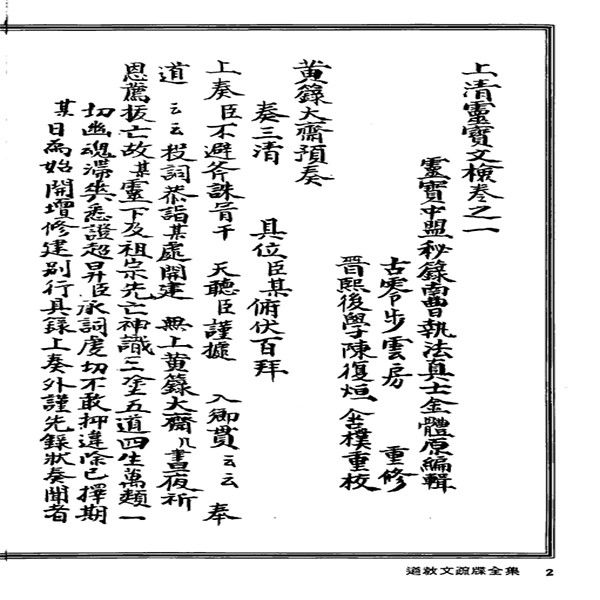 上清靈寶文檢卷之一
靈寶中盟秘籙南曹執法真士金體原編輯
古零步雲房　重修
晋熙後學陳復烜　金樸重校
黄籙大齋預奏
奏三清　具位臣某俯伏百拜
上奏臣不避斧誅冒干　天聽臣謹據　入鄉貫云云　奉
道　云云　投詞恭詣某處開建　無上黄籙大齋几晝夜祈
恩薦拔亡故某靈下及祖宗先亡神識三塗五道四生萬類一
切幽魂滯爽悉證超昇臣承詞虔切不敢抑違除已擇期
某日為始開壇修建别行具録上奏外謹先録狀奏聞者
道教文疏牒全集　2